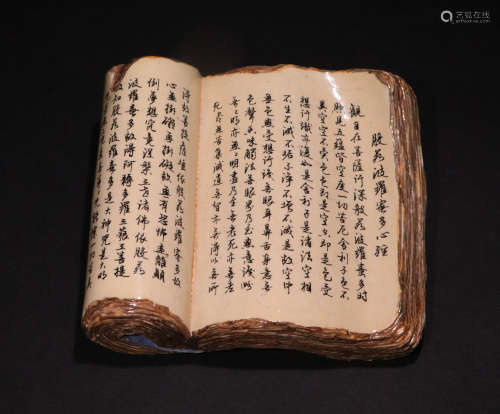 艺狐在线
般若波羅蜜多心經
觀自在菩薩行深般若波羅蜜多時
照見五蘊皆空度一切苦厄舍利子色不
異空空不異色色即是空空即是色受
想行識亦復如是舍利子是諸法空相
不生不滅不垢不淨不增不減是故空中
無色無受想行識無眼耳鼻舌身意無
色聲香味觸法無眼界乃至無意識界
無無明亦無無明盡乃至無老死亦無老
死盡無苦集滅道無智亦無得以無所
得故菩提薩埵依般若波羅蜜多故
心無罣礙無罣礙故無有恐怖遠離顛
倒夢想究竟涅槃三世諸佛依般若
波羅蜜多故得阿耨多羅三藐三菩提
故知般若波羅蜜多是大神咒是大明